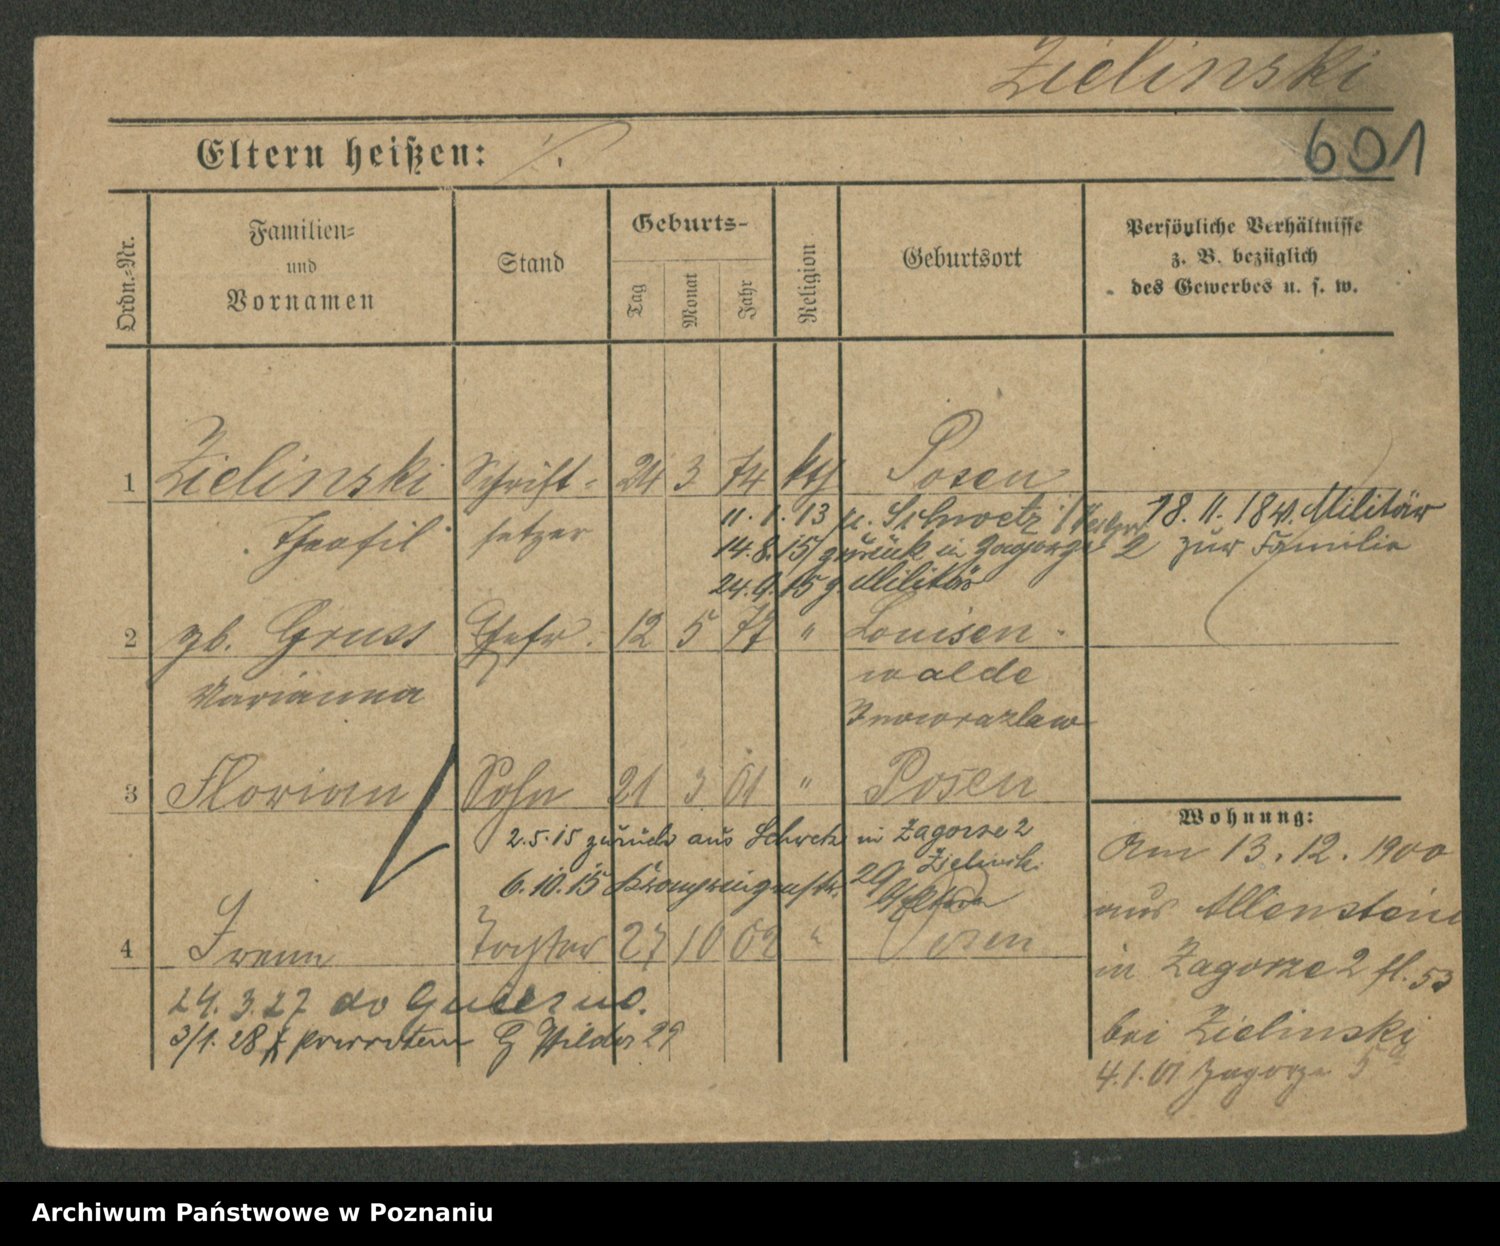 Zielinski
601
Eltern heißen: ./.
Ordn.-Nr.
Familien-
und
Vornamen
Stand
Geburts-
Tag
Monat
Jahr
Religion
Geburtsort
Persönliche Verhältnisse
z. B. bezüglich
des Gewerbes u. s. w.
1 Zielinski Schrift- 24 3 74 kth Posen
Theofil setzer
11.1.13 n. Schwetz
18.11.18 v. Militär
14.8.15 zurück in Zagorze 2 zur Familie
24.9.15 z. Militär
2 gb. Gruss Ehefr. 12 5 77 " Louisen-
Marianna walde
Inowrazlaw
3 Florian Sohn 21 3 01 " Posen
2.5.15 zurück aus Schwetz in Zagorze 2
Zielinski
6.10.15 Kronprinzenstr. 29
4 Irene Tochter 27 10 02 " Posen
24.3.27 do Gniezno.
3/1.28 z powrotem G Wilda 29
Wohnung:
Am 13.12.1900
aus Allenstein
in Zagorze 2 fl. 53
bei Zielinski
4.1.01 Zagorze 5
Archiwum Państwowe w Poznaniu